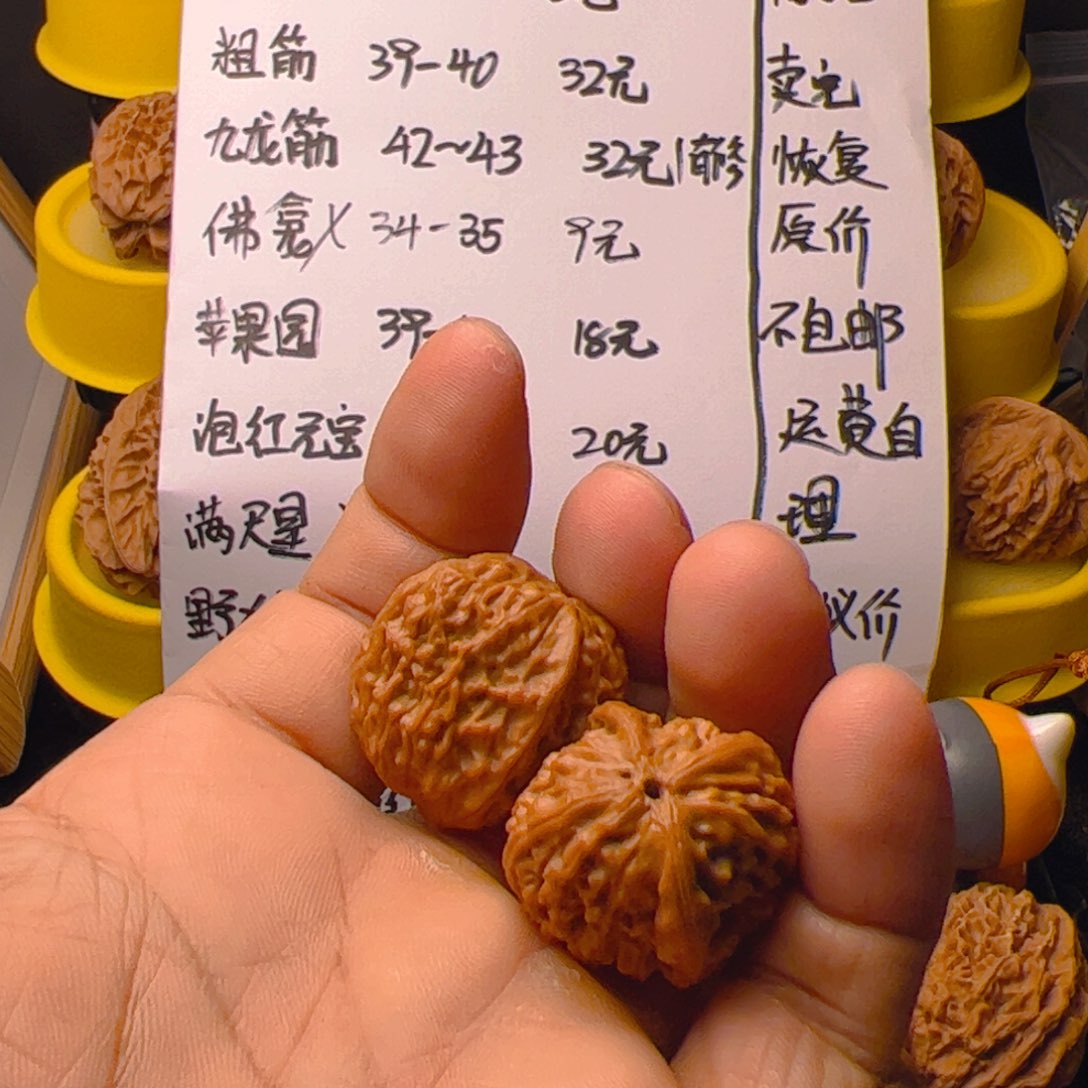 粗筋 39-40 32元
九龙筋 42~43 32元
佛龛 34-35 9元
苹果园 39- 18元
泡红元宝 20元
满天星
野
卖完
恢复
原价
不包邮
运费自
理
议价